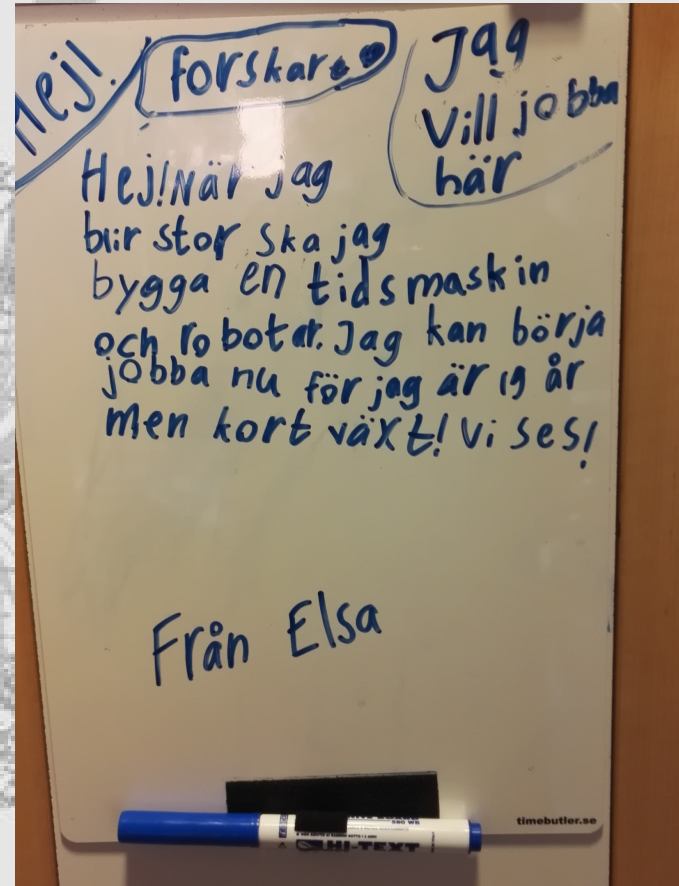 Hej!
forskare
Jag
vill jobba
här
Hej! När jag
blir stor ska jag
bygga en tidsmaskin
och robotar. Jag kan börja
jobba nu för jag är 19 år
men kort växt! Vi ses!
Från Elsa
timebutler.se
HI-TEXT